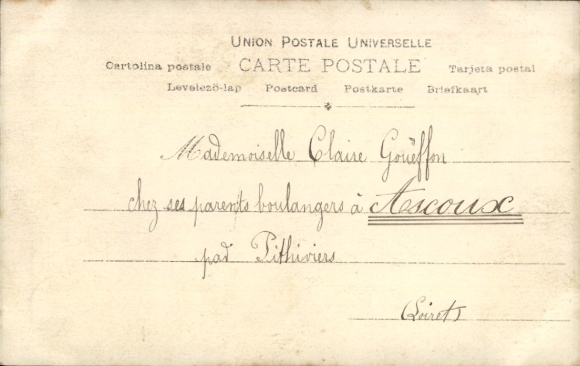 UNION POSTALE UNIVERSELLE
Cartolina postale CARTE POSTALE Tarjeta postal
Levelező-lap Postcard Postkarte Briefkaart
Mademoiselle Claire Gouëffon
chez ses parents boulangers à Ascoux
par Pithiviers
Loiret